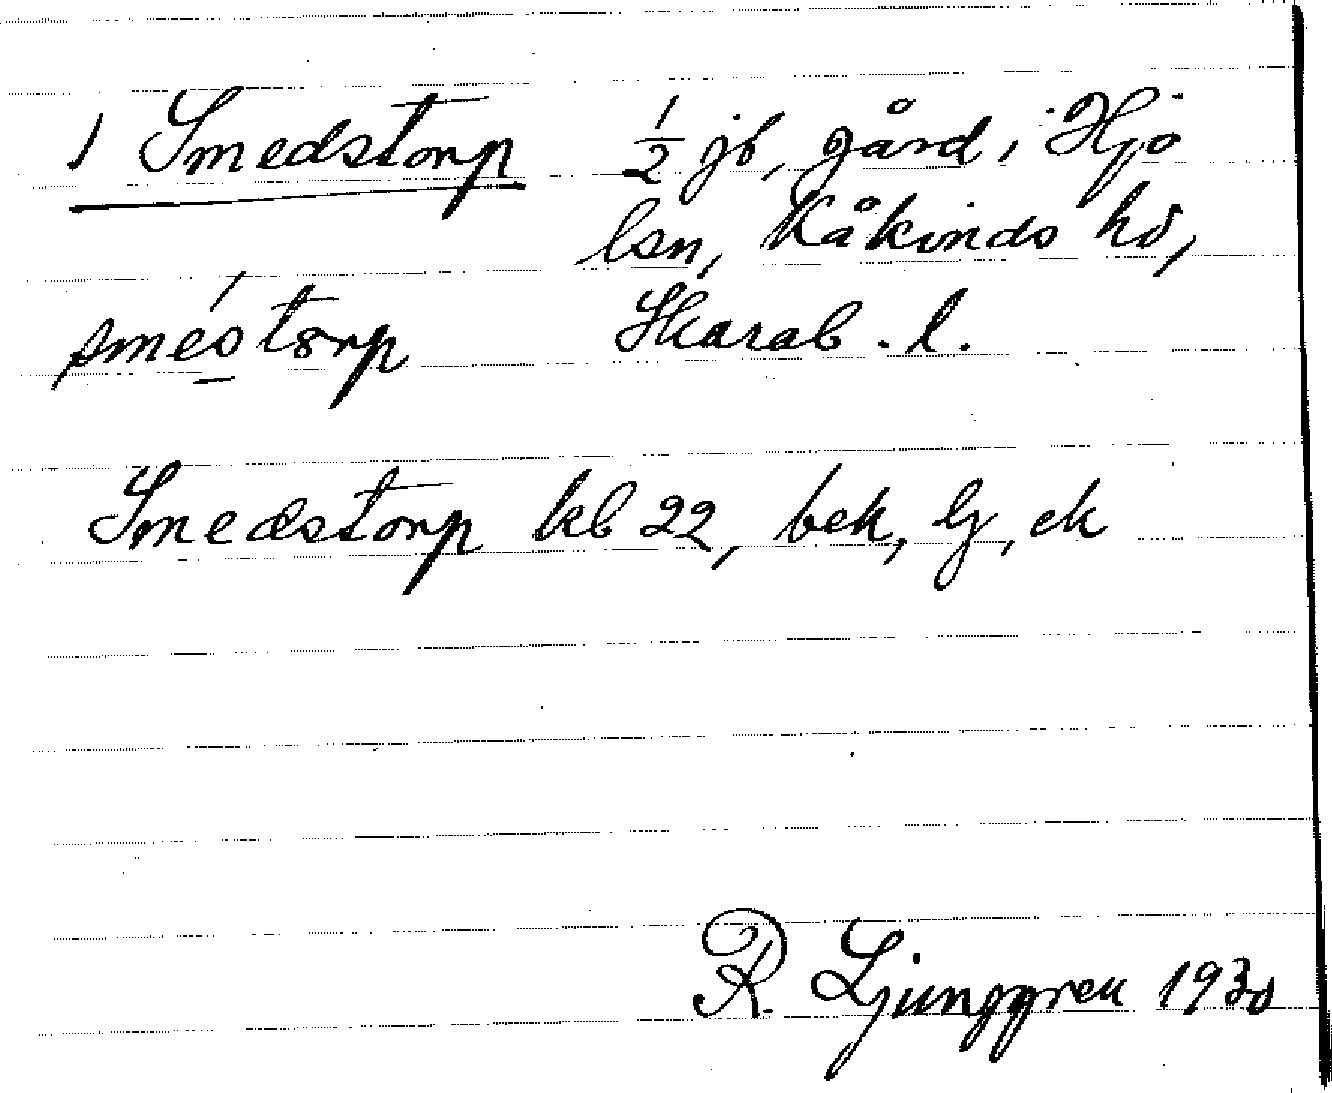 1 Smedstorp ½ jb, gård i Hjo
lsn, Kåkinds hd,
Skarab. l.
smestorp
Smedstorp kb 22, bek, lj, ek
R. Ljunggren 1930